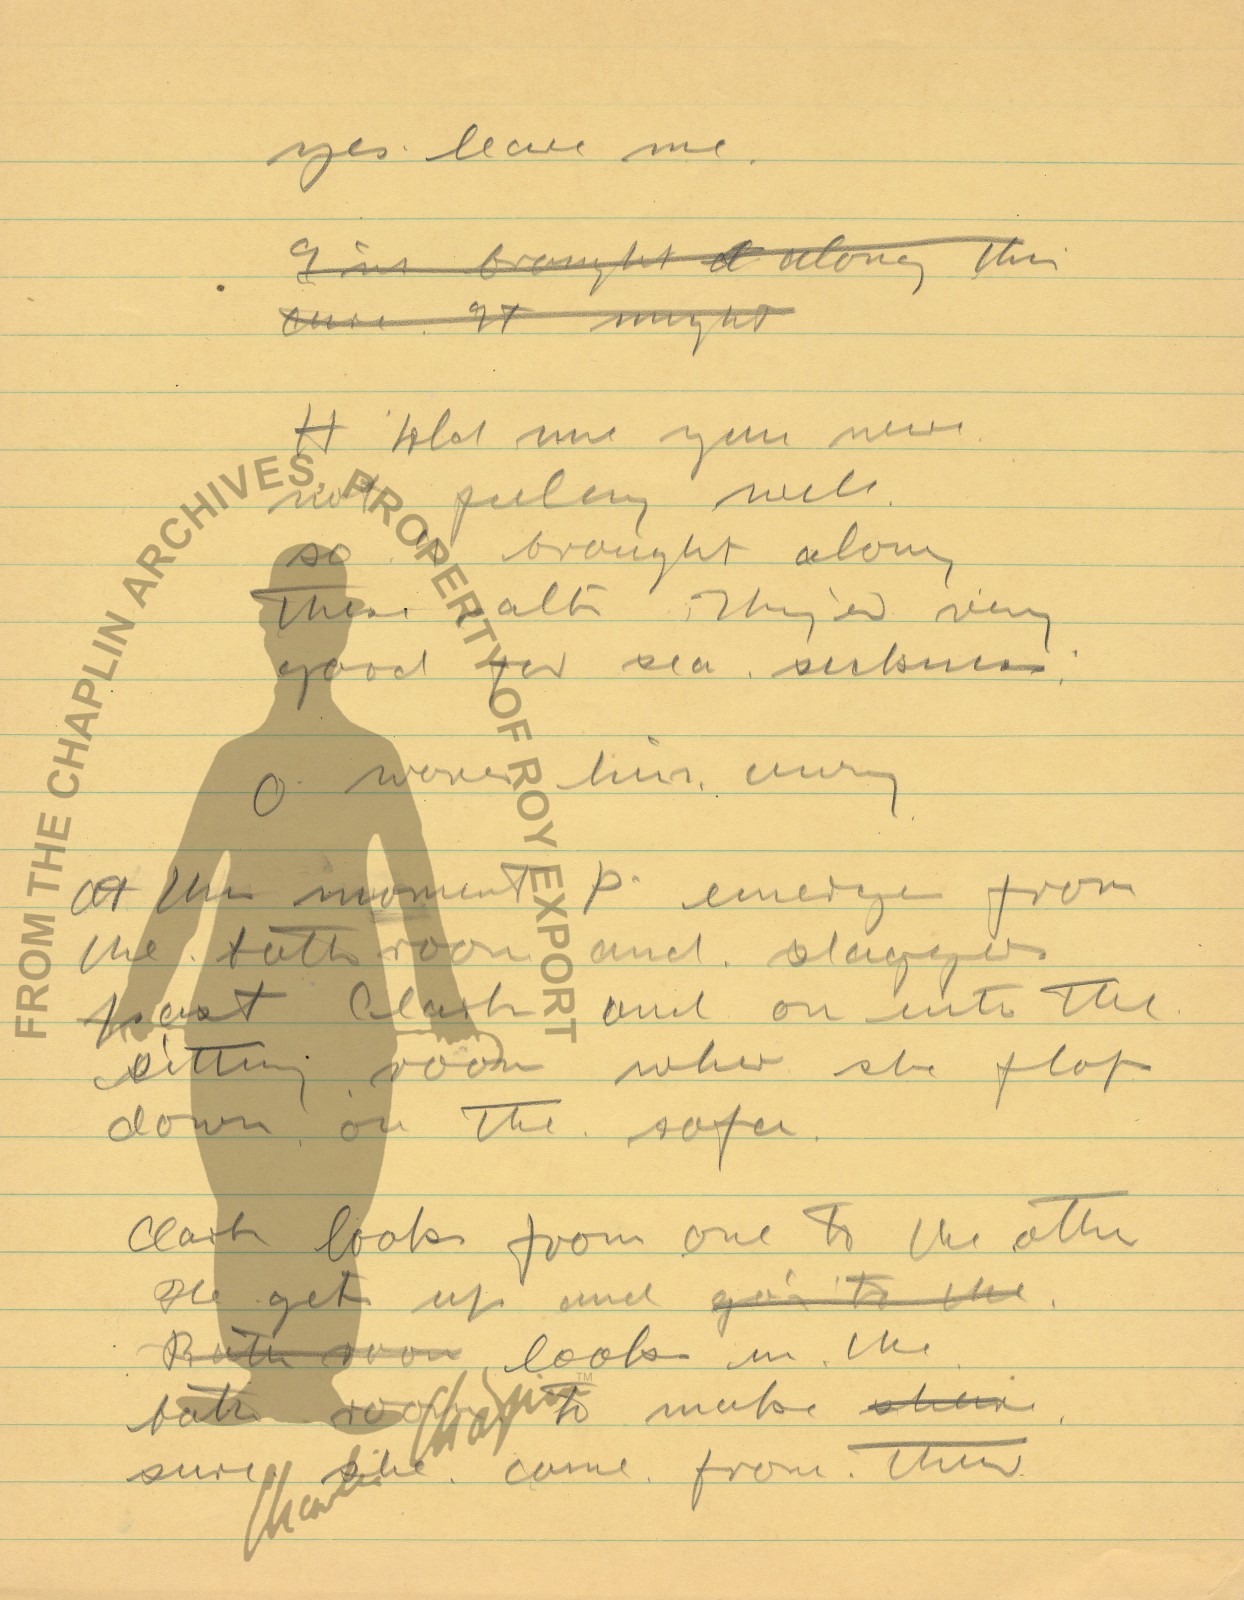 yes. leave me.
I'ms brought along this
sure. It might
H told me you were
not feeling well.
so I brought along
these salts They're very
good for sea sickness.
O. waves him away
At this moment P. emerge from
the bath room and staggers
past Clark and on into the
sitting room wher she flop
down on the sofa.
Clark looks from one to the other
He get up and goes to the
Bath room looks in the
bath room to make
sure she came from there
FROM THE CHAPLIN ARCHIVES, PROPERTY OF ROY EXPORT
Charlie Chaplin™